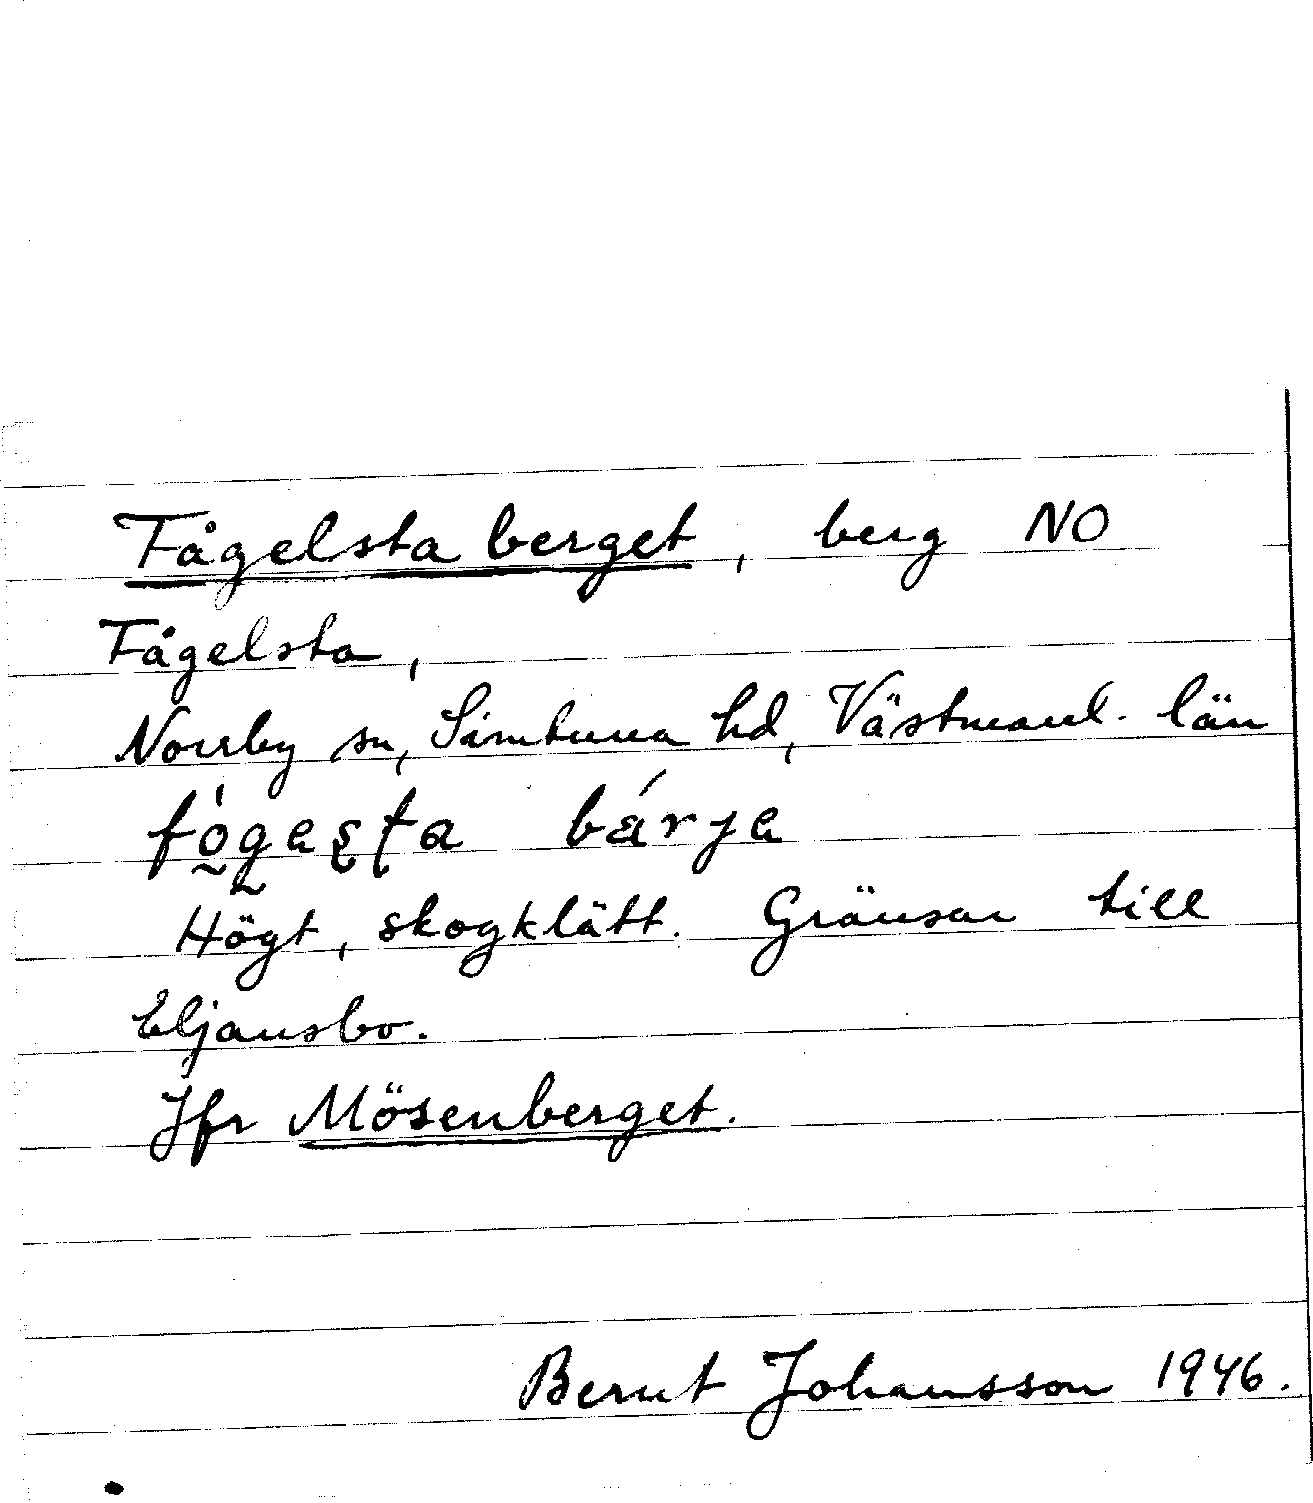 Fågelsta berget, berg NO
Fågelsta,
Norrby sn, Simtuna hd, Västmanl. län
Högt, skogklätt. Gränsar till
Eljansbo.
Jfr Mösenberget.
Bernt Johansson 1946.